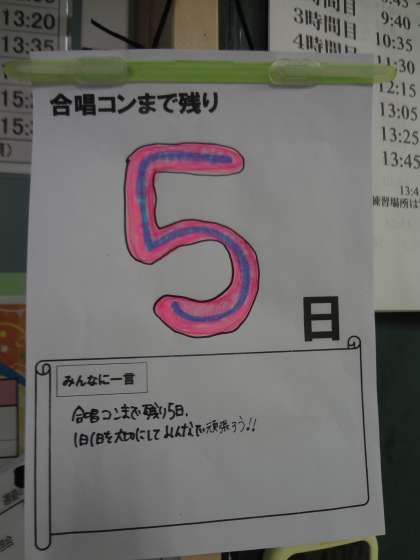 13:20
13:35
3時間目
4時間目
9:45
10:35
11:30
12:15
13:05
12:25
13:45
練習場所は
合唱コンまで残り
5
日
みんなに一言
合唱コンまで残り5日、
1日1日を大切にしてみんなで頑張ろう!!